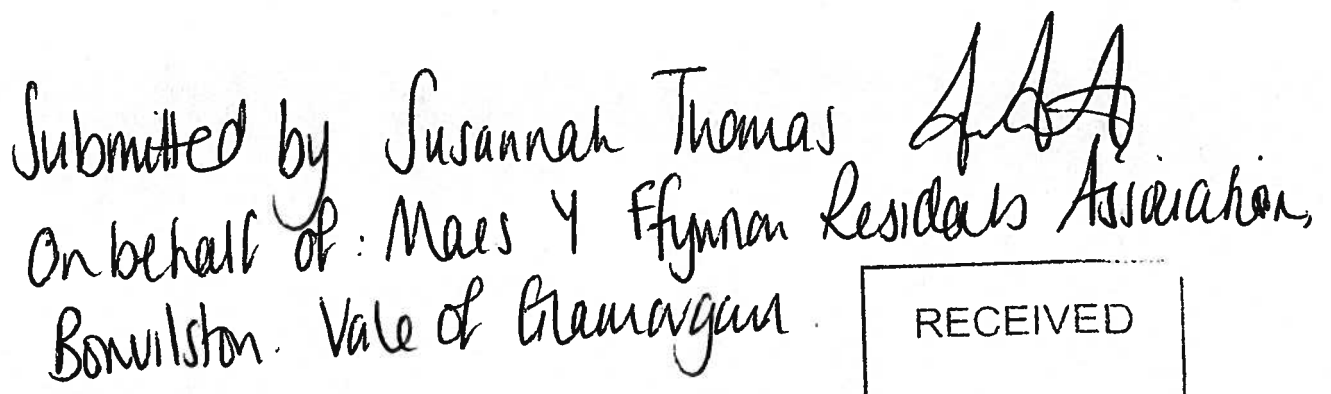 Submitted by Susannah Thomas
On behalf of: Maes Y Ffynnon Residents Association,
Bonvilston. Vale of Glamorgan.
RECEIVED